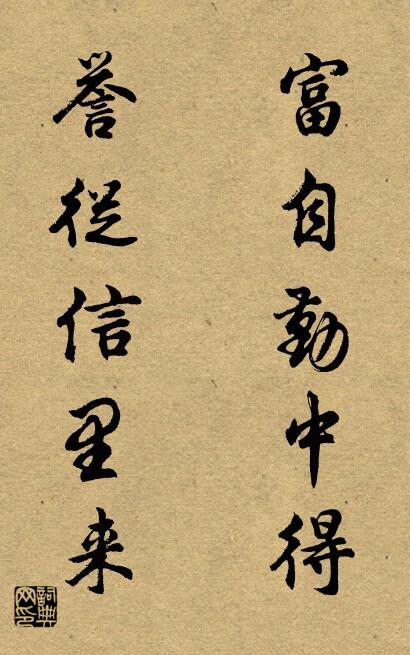 富自勤中得
誉從信里来
詞典网印